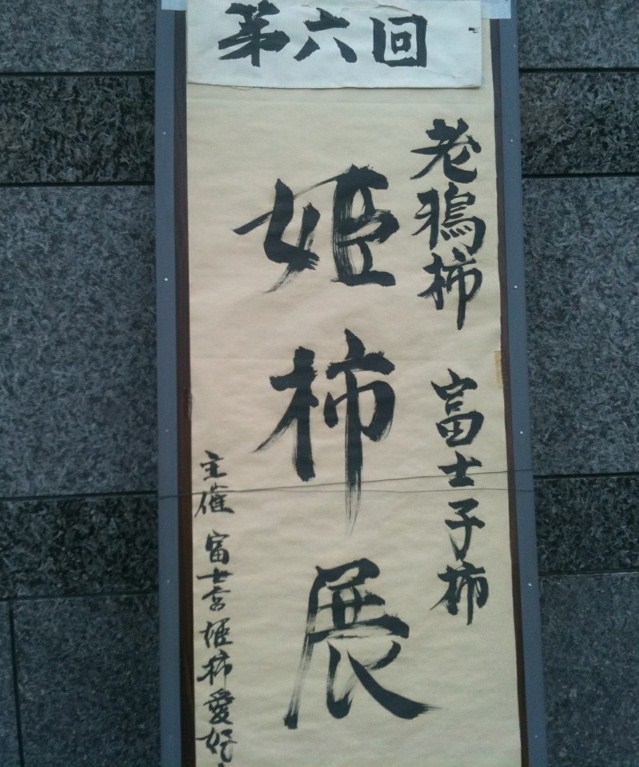 第六回
老鴉柿 富士子柿
姫柿展
主催 富士宮姫柿愛好